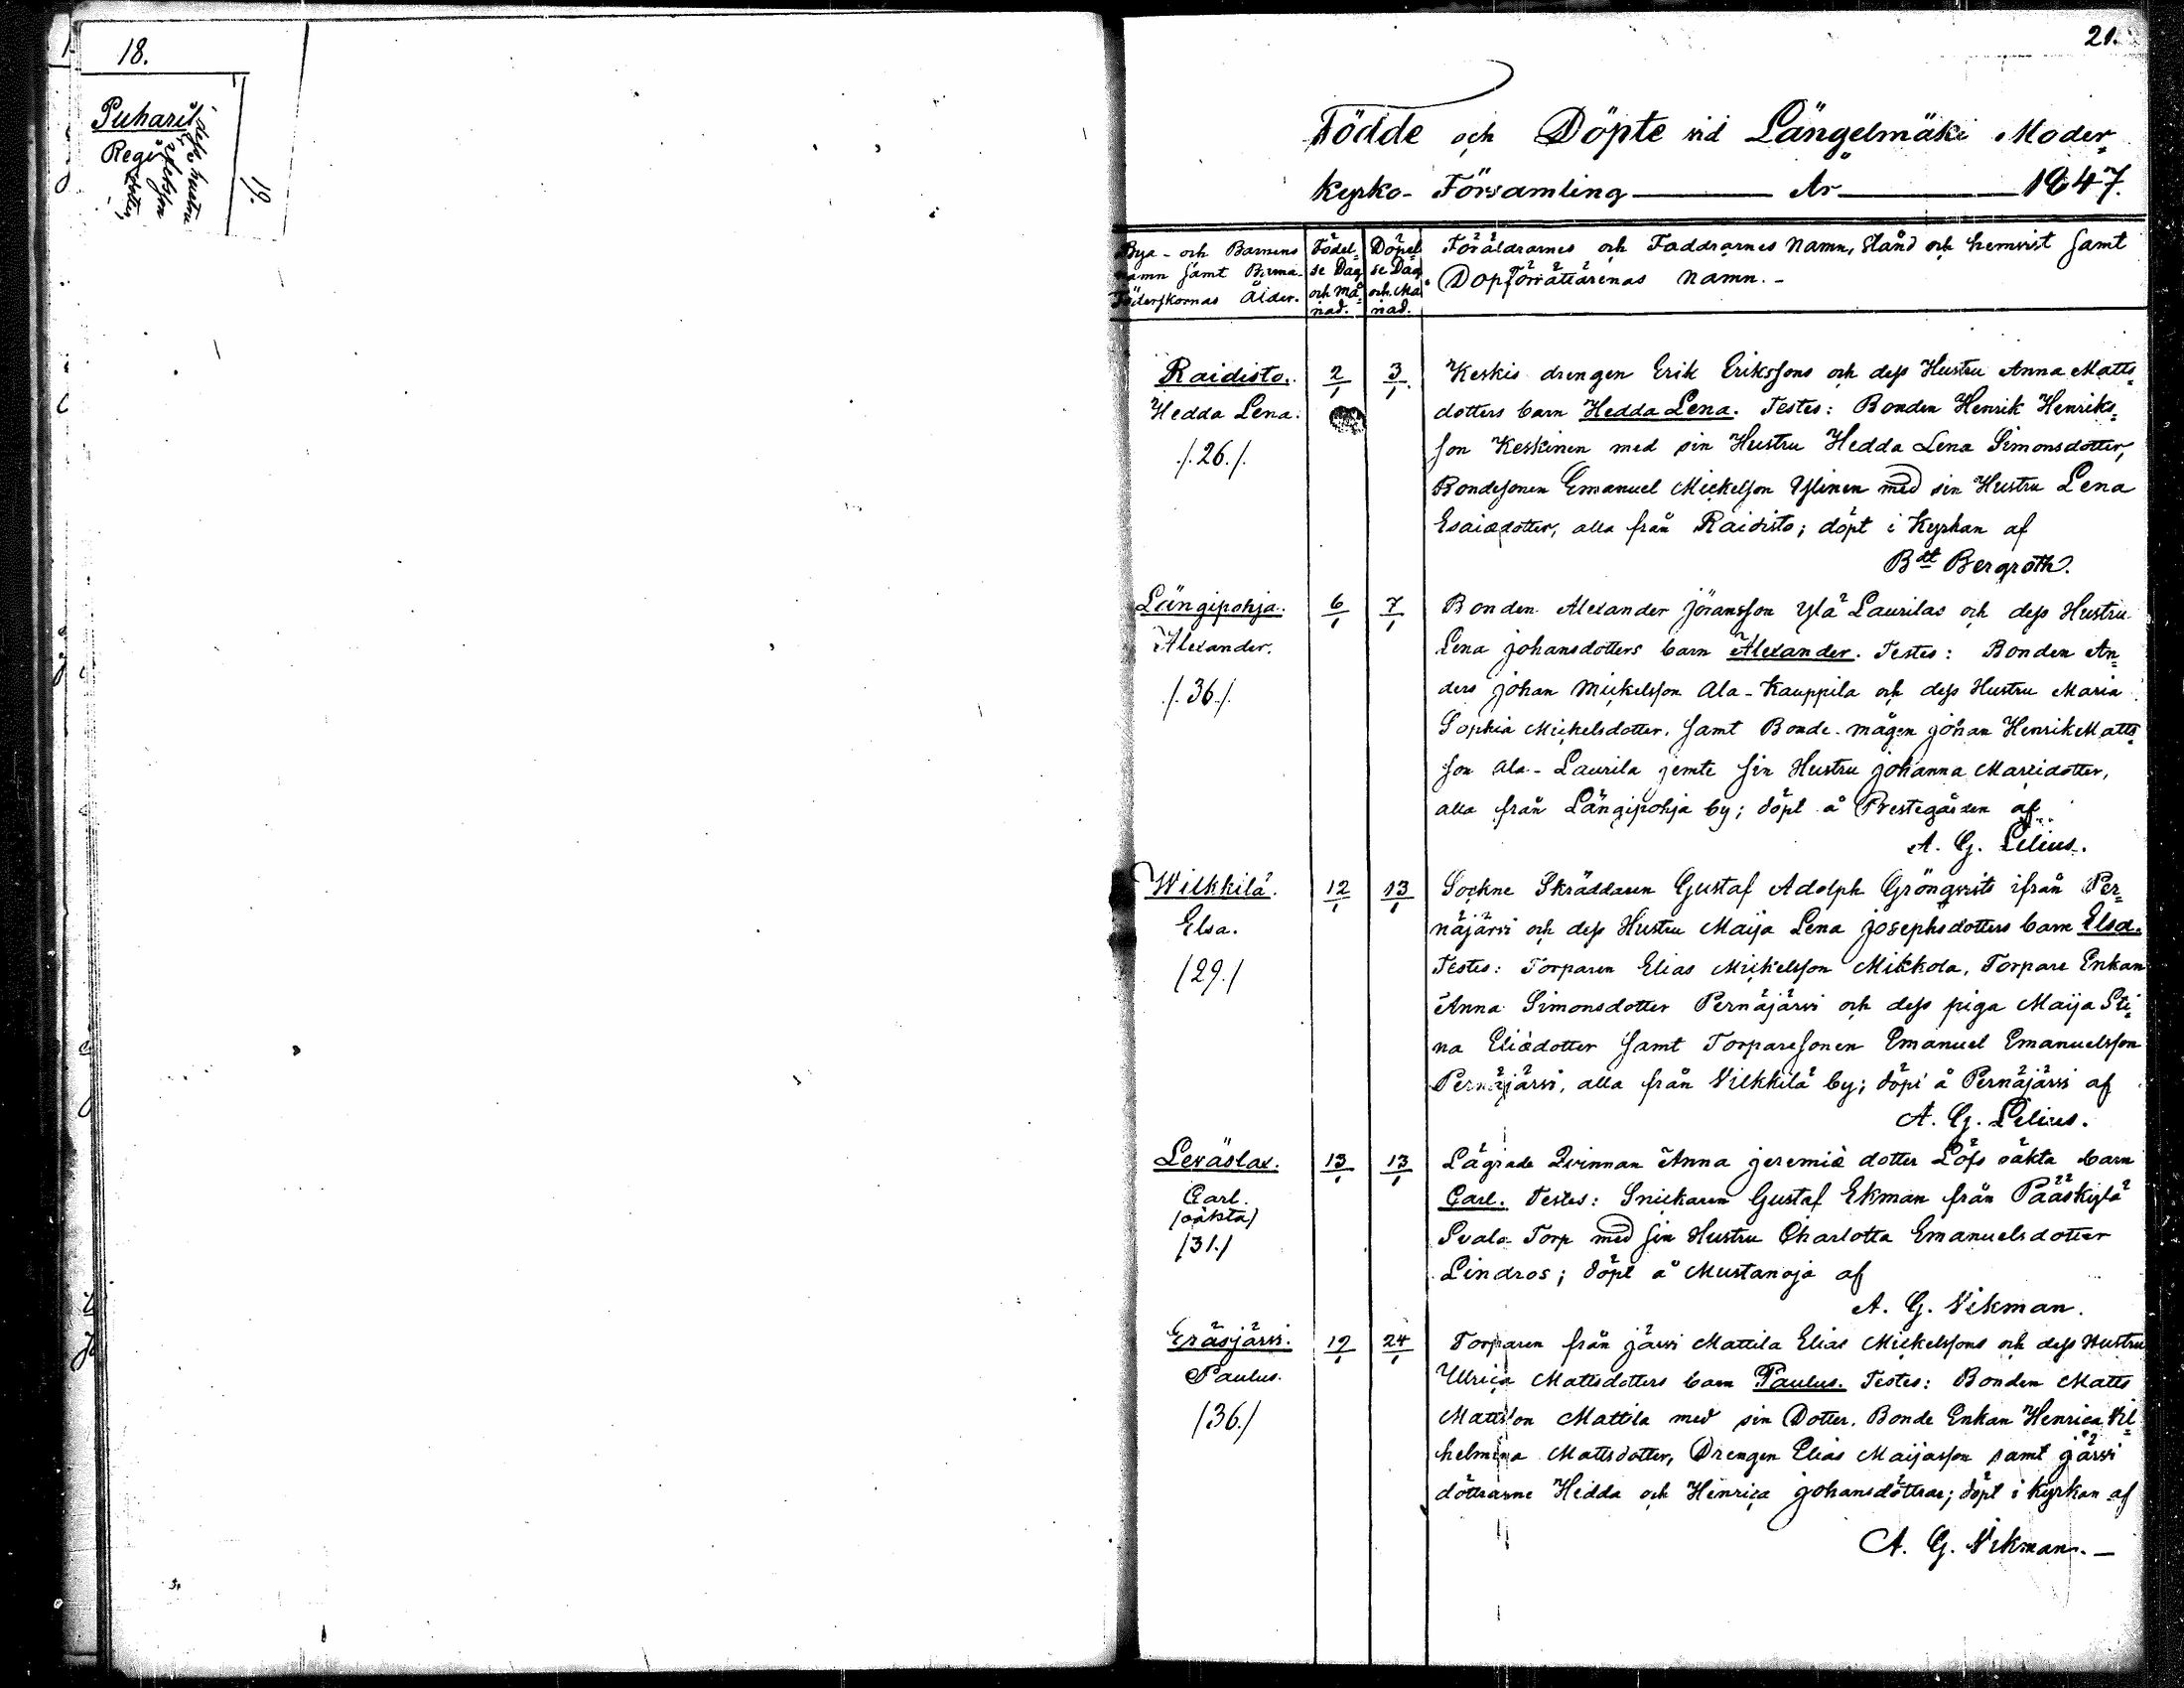 18.
Puharil
Regi
19.
21.
Födde och Döpte vid Längelmäki Moder=
Kyrko-Församling —— År —— 1847.
Bya- och Barnens
namn samt Barna-
föderskornas Ålder.
Födel=
se Dag
och Må=
nad.
Döpel=
se Dag
och Må=
nad.
Föräldrarnes och Faddrarnes Namn, Stånd och hemvist samt
Dopförrättarenas Namn.-
Raidisto.
Hedda Lena.
/.26./.
2/1
3/1.
Keskis drengen Erik Erikssons och dess Hustru Anna Matts=
dotters barn Hedda Lena. Testes: Bonden Henrik Henriks=
son Keskinen med sin Hustru Hedda Lena Simonsdotter,
Bondesonen Emanuel Mickelson Yslinen med sin Hustru Lena
Esaiædotter, alla från Raidisto; döpt i Kyrkan af
Bdt Bergroth.
Längipohja.
Alexander.
/.36./.
6/1
7/1
Bonden Alexander Jöransson Ylä Laurilas och dess Hustru
Lena Johansdotters barn Alexander. Testes: Bonden An=
ders Johan Mickelsson Ala-Kauppila och dess Hustru Maria
Sophia Mickelsdotter, samt Bonde-mågen Johan Henrik Matts=
son Ala-Laurila jemte sin Hustru Johanna Marxidotter,
alla från Längipohja by; döpt å Prestegården af
A. G. Lilius.
Wilkkilä.
Elsa.
/29./
12/1
13/1
Sockne Skräddaren Gustaf Adolph Grönqvists ifrån Per=
näjärvi och dess Hustru Maija Lena Josephsdotters barn Elsa.
Testes: Torparen Elias Mickelsson Mikkola, Torpare Enkan
Anna Simonsdotter Pernäjärvi och dess piga Maija Sti=
na Eliædotter samt Torparesonen Emanuel Emanuelsson
Pernäjärvi, alla från Vilkkilä by; döpt å Pernäjärvi af
A. G. Lilius.
Leväslax.
Carl.
/oäkta/
/31./
13/1
13/1
Lägrade Qvinnan Anna Jeremiæ dotter Löfs oäkta barn
Carl. Testes: Snickaren Gustaf Ekman från Pääskylä
Svals Torp med sin Hustru Charlotta Emanuelsdotter
Lindros; döpt å Mustanoja af
A. G. Vikman.
Eräsjärvi.
Paulus.
/36./
19/1
24/1
Torparen från Järvi Mattila Elias Mickelssons och dess Hustru
Ulrica Mattsdotters barn Paulus. Testes: Bonden Matts
Mattsson Mattila med sin Dotter, Bonde Enkan Henrica Vil=
helmina Mattsdotter, Drengen Elias Maijasson samt Järvi
döttrarne Hedda och Henrica Johansdöttrar; döpt i Kyrkan af
A. G. Vikman.—